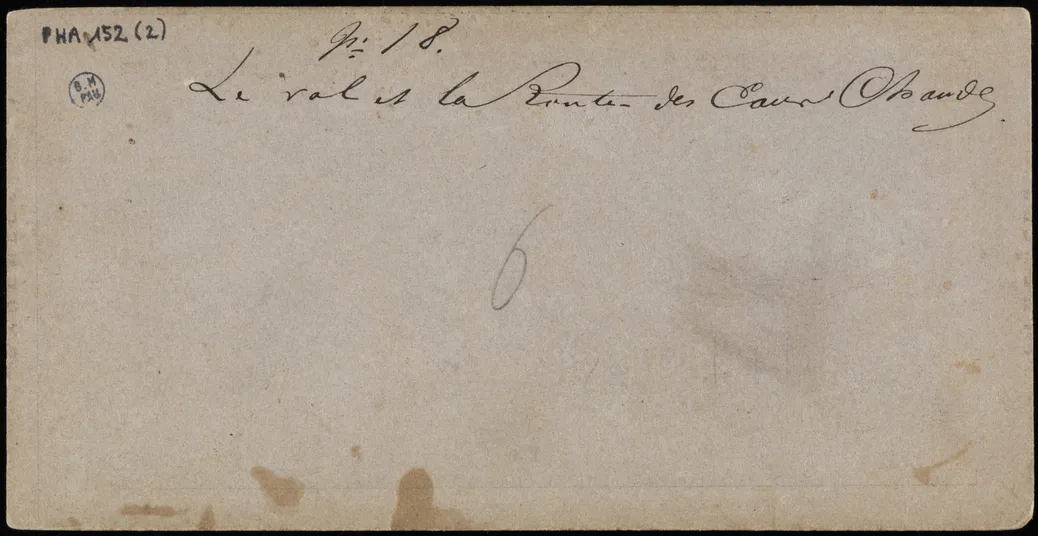 PHA 152 (2)
n: 18.
B. M
PAU
Le val et la Route des Eaux Chaudes.
6